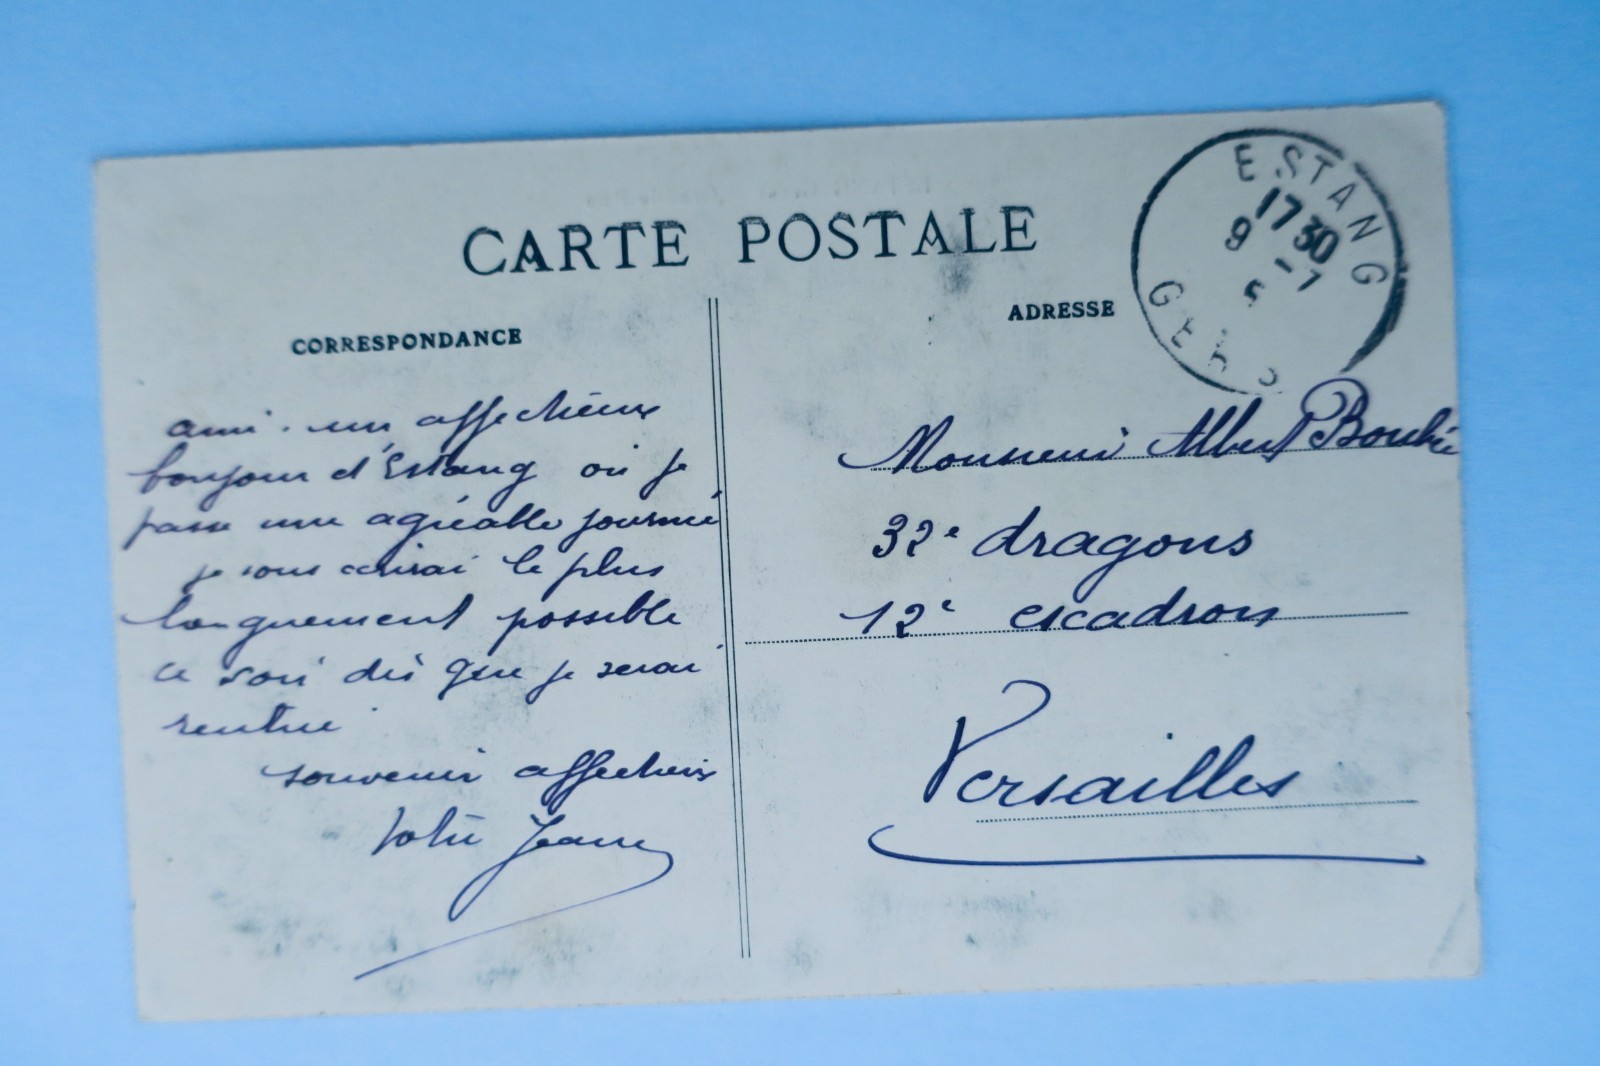 CARTE POSTALE
CORRESPONDANCE
ami. un affectueux
bonjour d'Estang où je
passe une agréable journée
je vous écrirai le plus
longuement possible
ce soir dès que je serai
rentrée
souvenir affectueux
Votre Jeanne
ESTANG
17 30
9 - 7
GERS
ADRESSE
Monsieur Albert
32e dragons
12e escadron
Versailles